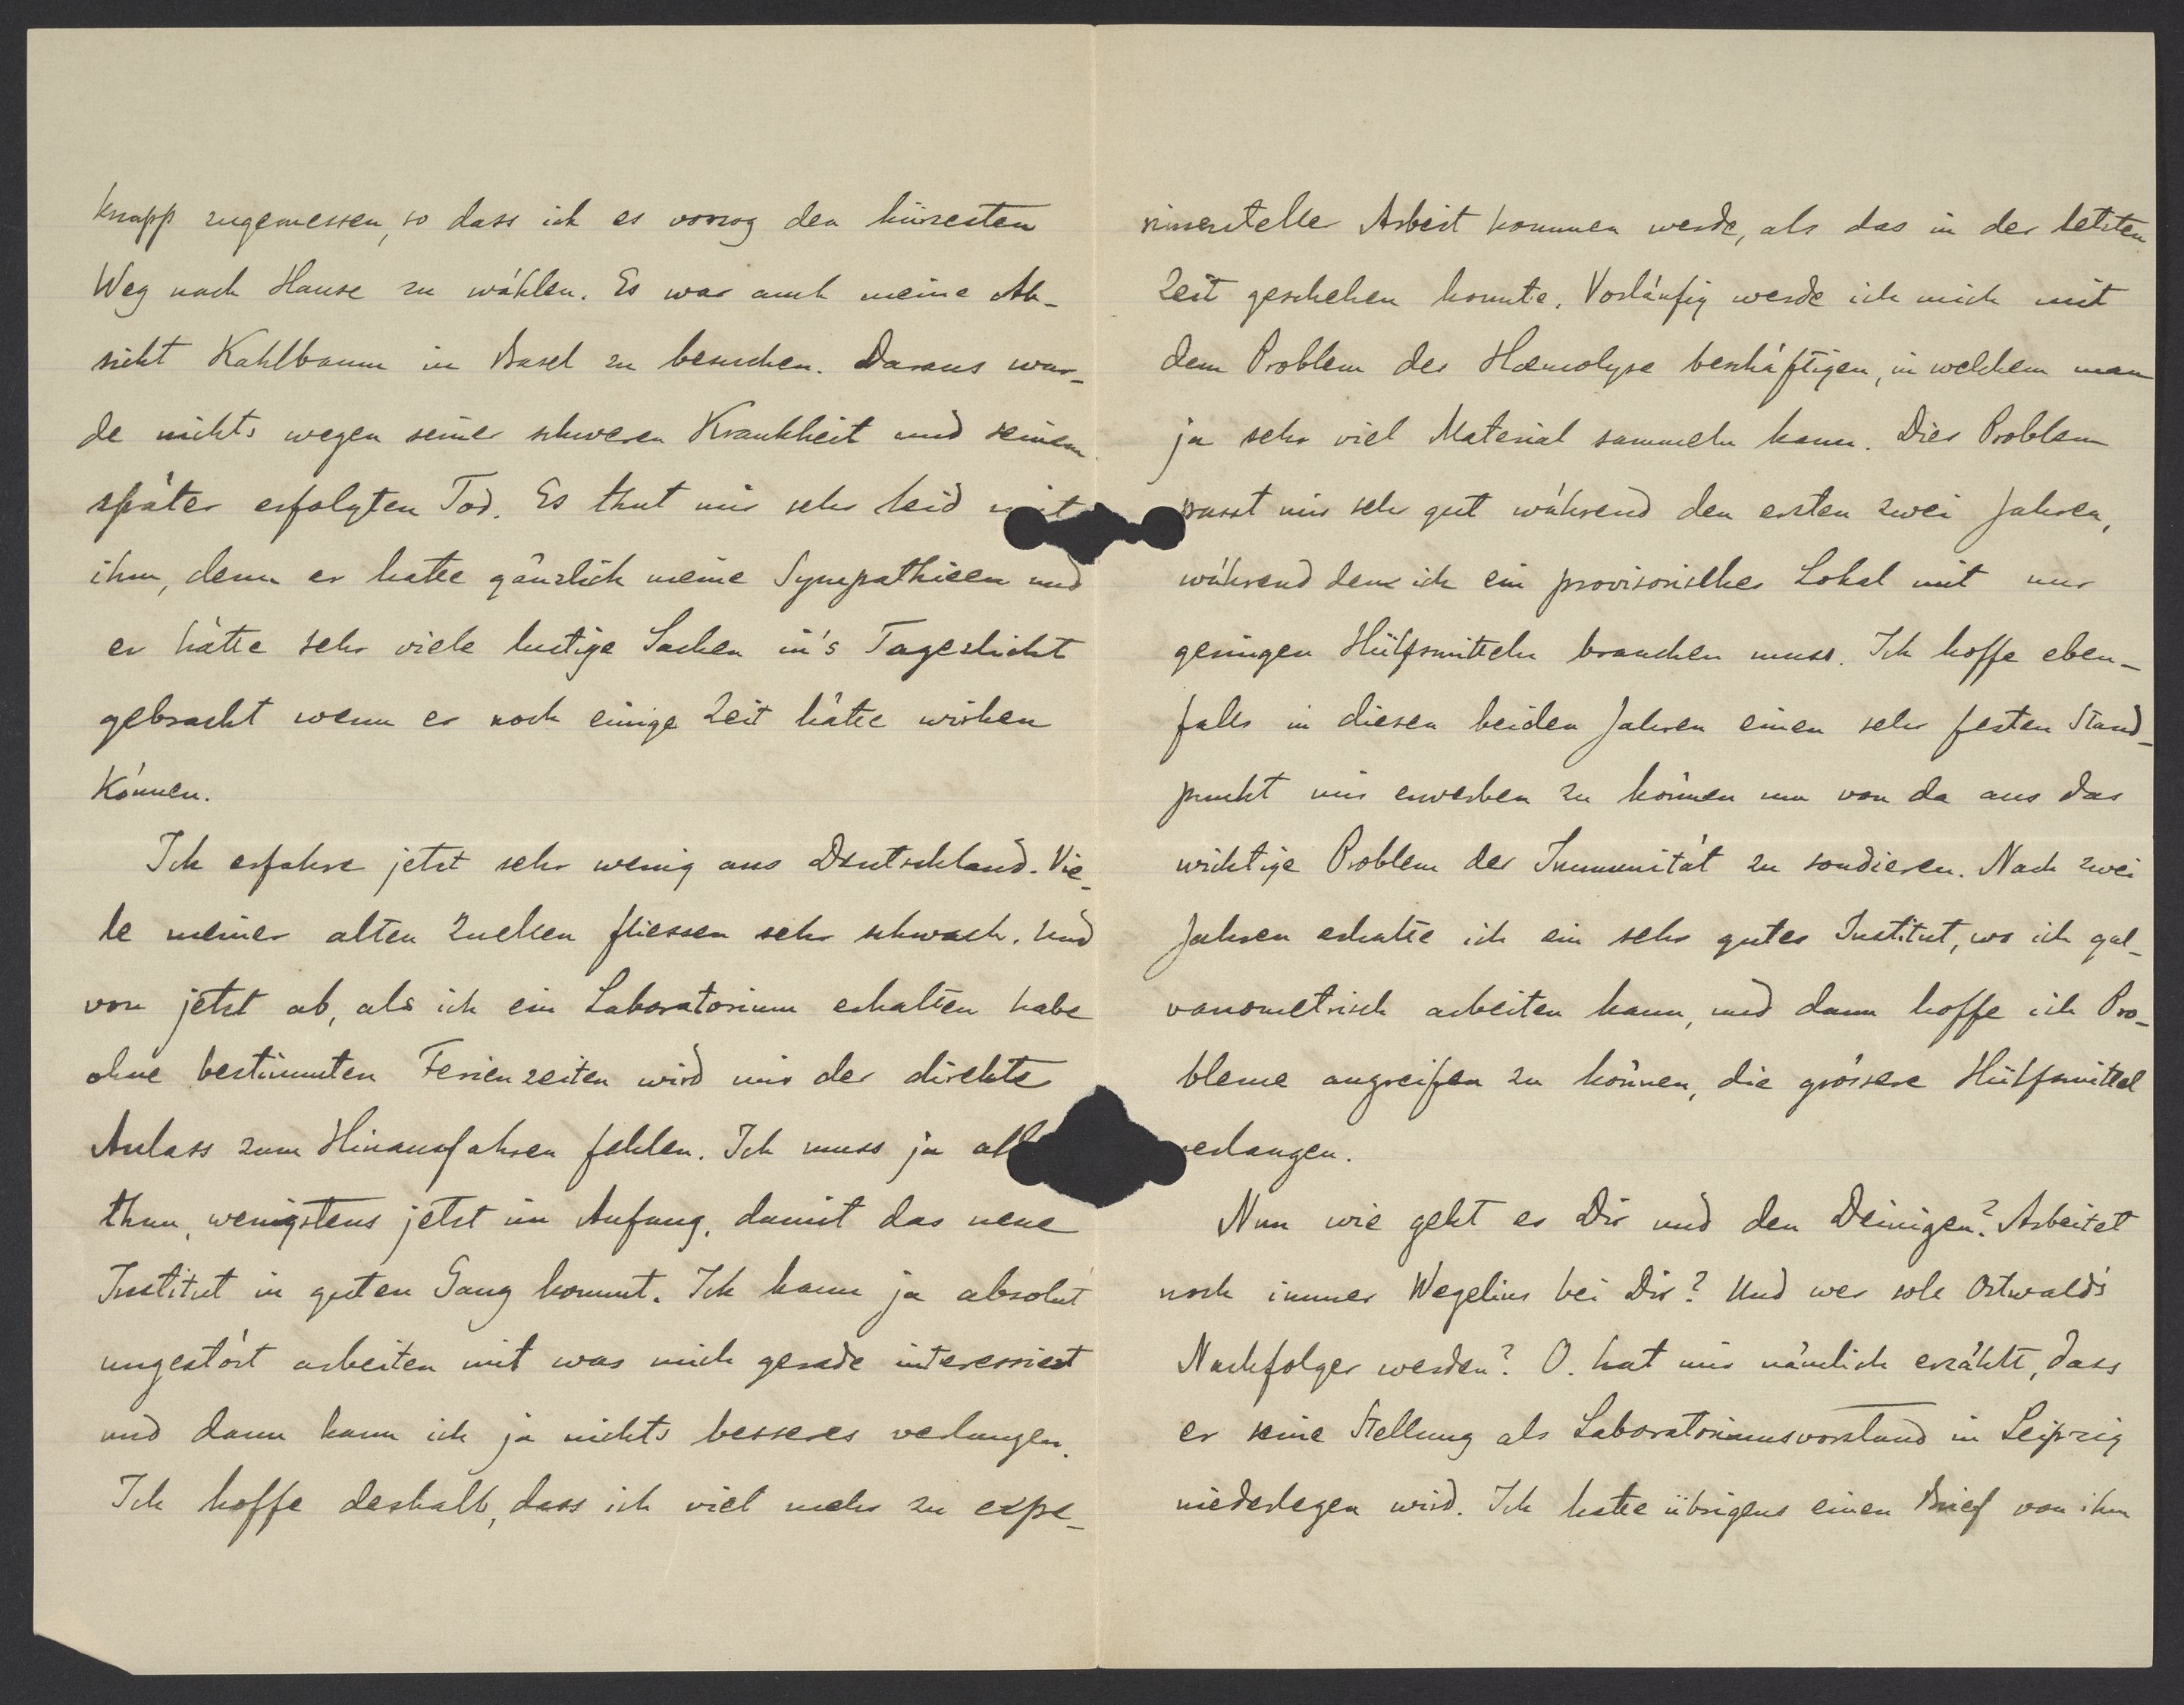 knapp zugemessen, so dass ich es vorzog den kürzesten
Weg nach Hause zu wählen. Es war auch meine Ab-
sicht Kahlbaum in Basel zu besuchen. Daraus wur-
de nichts wegen seiner schweren Krankheit und seinem
später erfolgten Tod. Es thut mir sehr leid mit
ihm, denn er hatte gänzlich meine Sympathieen und
er hätte sehr viele lustige Sachen in's Tageslicht
gebracht wenn er noch einige Zeit hätte wirken
können.
Ich erfahre jetzt sehr wenig aus Deutschland. Vie-
le meiner alten Quellen fliessen sehr schwach. Und
von jetzt ab, als ich ein Laboratorium erhalten habe
ohne bestimmten Ferienzeiten wird mir der direkte
Anlass zum Hinausfahren fehlen. Ich muss ja all
thun, wenigstens jetzt im Anfang, damit das neue
Institut in guten Gang kommt. Ich kann ja absolut
ungestört arbeiten mit was mich gerade interessiert
und dann kann ich ja nichts besseres verlangen.
Ich hoffe deshalb, dass ich viel mehr zu expe-
rimenteller Arbeit kommen werde, als das in der letzten
Zeit geschehen konnte. Vorläufig werde ich mich mit
dem Problem der Hæmolyse beschäftigen, in welchem man
ja sehr viel Material sammeln kann. Dies Problem
passt mir sehr gut während den ersten zwei Jahren,
während dem ich ein provisorisches Lokal mit nur
geringen Hülfsmitteln brauchen muss. Ich hoffe eben-
falls in diesen beiden Jahren einen sehr festen Stand-
punkt mir erwerben zu können um von da aus das
wichtige Problem der Immunität zu sondieren. Nach zwei
Jahren erhalte ich ein sehr gutes Institut, wo ich gal-
vanometrisch arbeiten kann, und dann hoffe ich Pro-
bleme angreifen zu können, die grössere Hülfsmittel
verlangen.
Nun wie geht es Dir und den Deinigen? Arbeitet
noch immer Wegelius bei Dir? Und wer soll Ostwald's
Nachfolger werden? O. hat mir nämlich erzählt, dass
er seine Stellung als Laboratoriumsvorstand in Leipzig
niederlegen wird. Ich hatte übrigens einen Brief von ihm